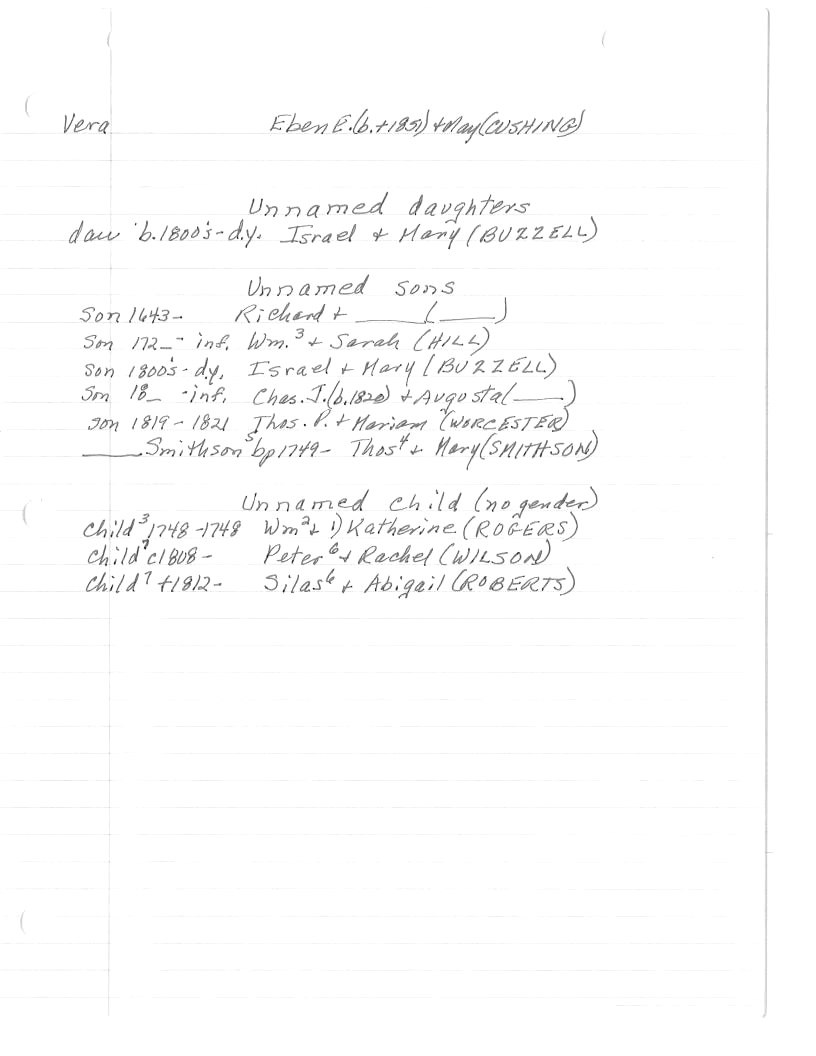 Vera Eben E.(b.+1851) + May (CUSHING)
Unnamed daughters
dau b.1800's - d.y. Israel + Mary (BUZZELL)
Unnamed sons
Son 1643- Richard + ______(_____)
Son 172_- inf. Wm.³ + Sarah (HILL)
Son 1800's - d.y. Israel + Mary (BUZZELL)
Son 18_ -inf. Chas. J.(b.1820) + Augusta(____)
Son 1819 - 1821 Thos. P. + Mariam (WORCESTER)
_____Smithson⁵ bp1749- Thos⁴ + Mary (SMITHSON)
Unnamed child (no gender)
Child³ 1748-1748 Wm² + 1) Katherine (ROGERS)
Child⁷ c1808- Peter⁶ + Rachel (WILSON)
Child⁷ +1812- Silas⁶ + Abigail (ROBERTS)